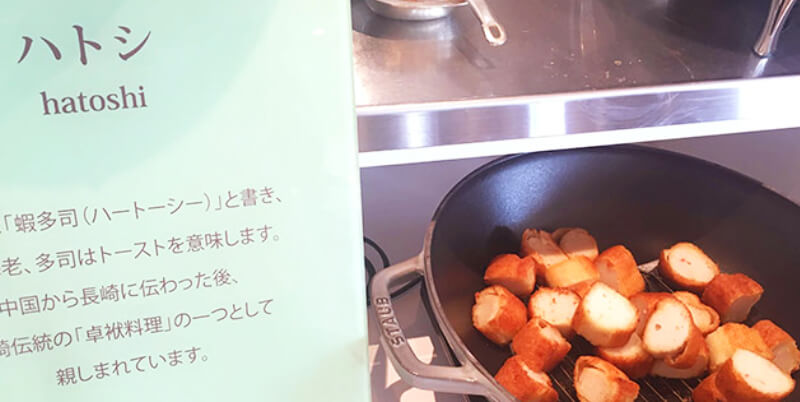 ハトシ
hatoshi
「蝦多司（ハートーシー）」と書き、
老、多司はトーストを意味します。
中国から長崎に伝わった後、
崎伝統の「卓袱料理」の一つとして
親しまれています。
STAUB